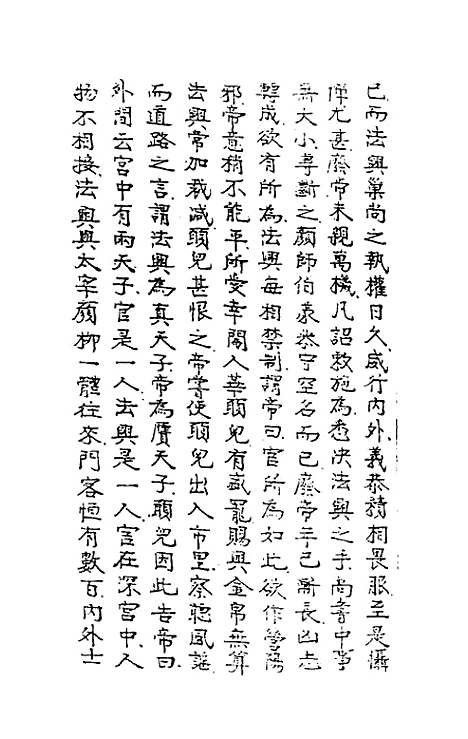 已而法興巢尚之執權日久威行內外義恭積相畏服至是懾
憚尤甚廢帝未親萬機凡詔敕施為悉決法興之手尚書中事
無大小專斷之顏師伯義恭守空名而已廢帝年已漸長凶志
轉成欲有所為法興每相禁制謂帝曰官所為如此欲作營陽
邪帝意稍不能平所愛幸閹人華願兒有盛寵賜與金帛無算
法興常加裁減願兒甚恨之帝嘗使願兒出入市里察聽風謠
而道路之言謂法興為真天子帝為贗天子願兒因此告帝曰
外間云宮中有兩天子官是一人法興是一人官在深宮中人
物不相接法興與太宰顏柳一體往來門客恒有數百內外士